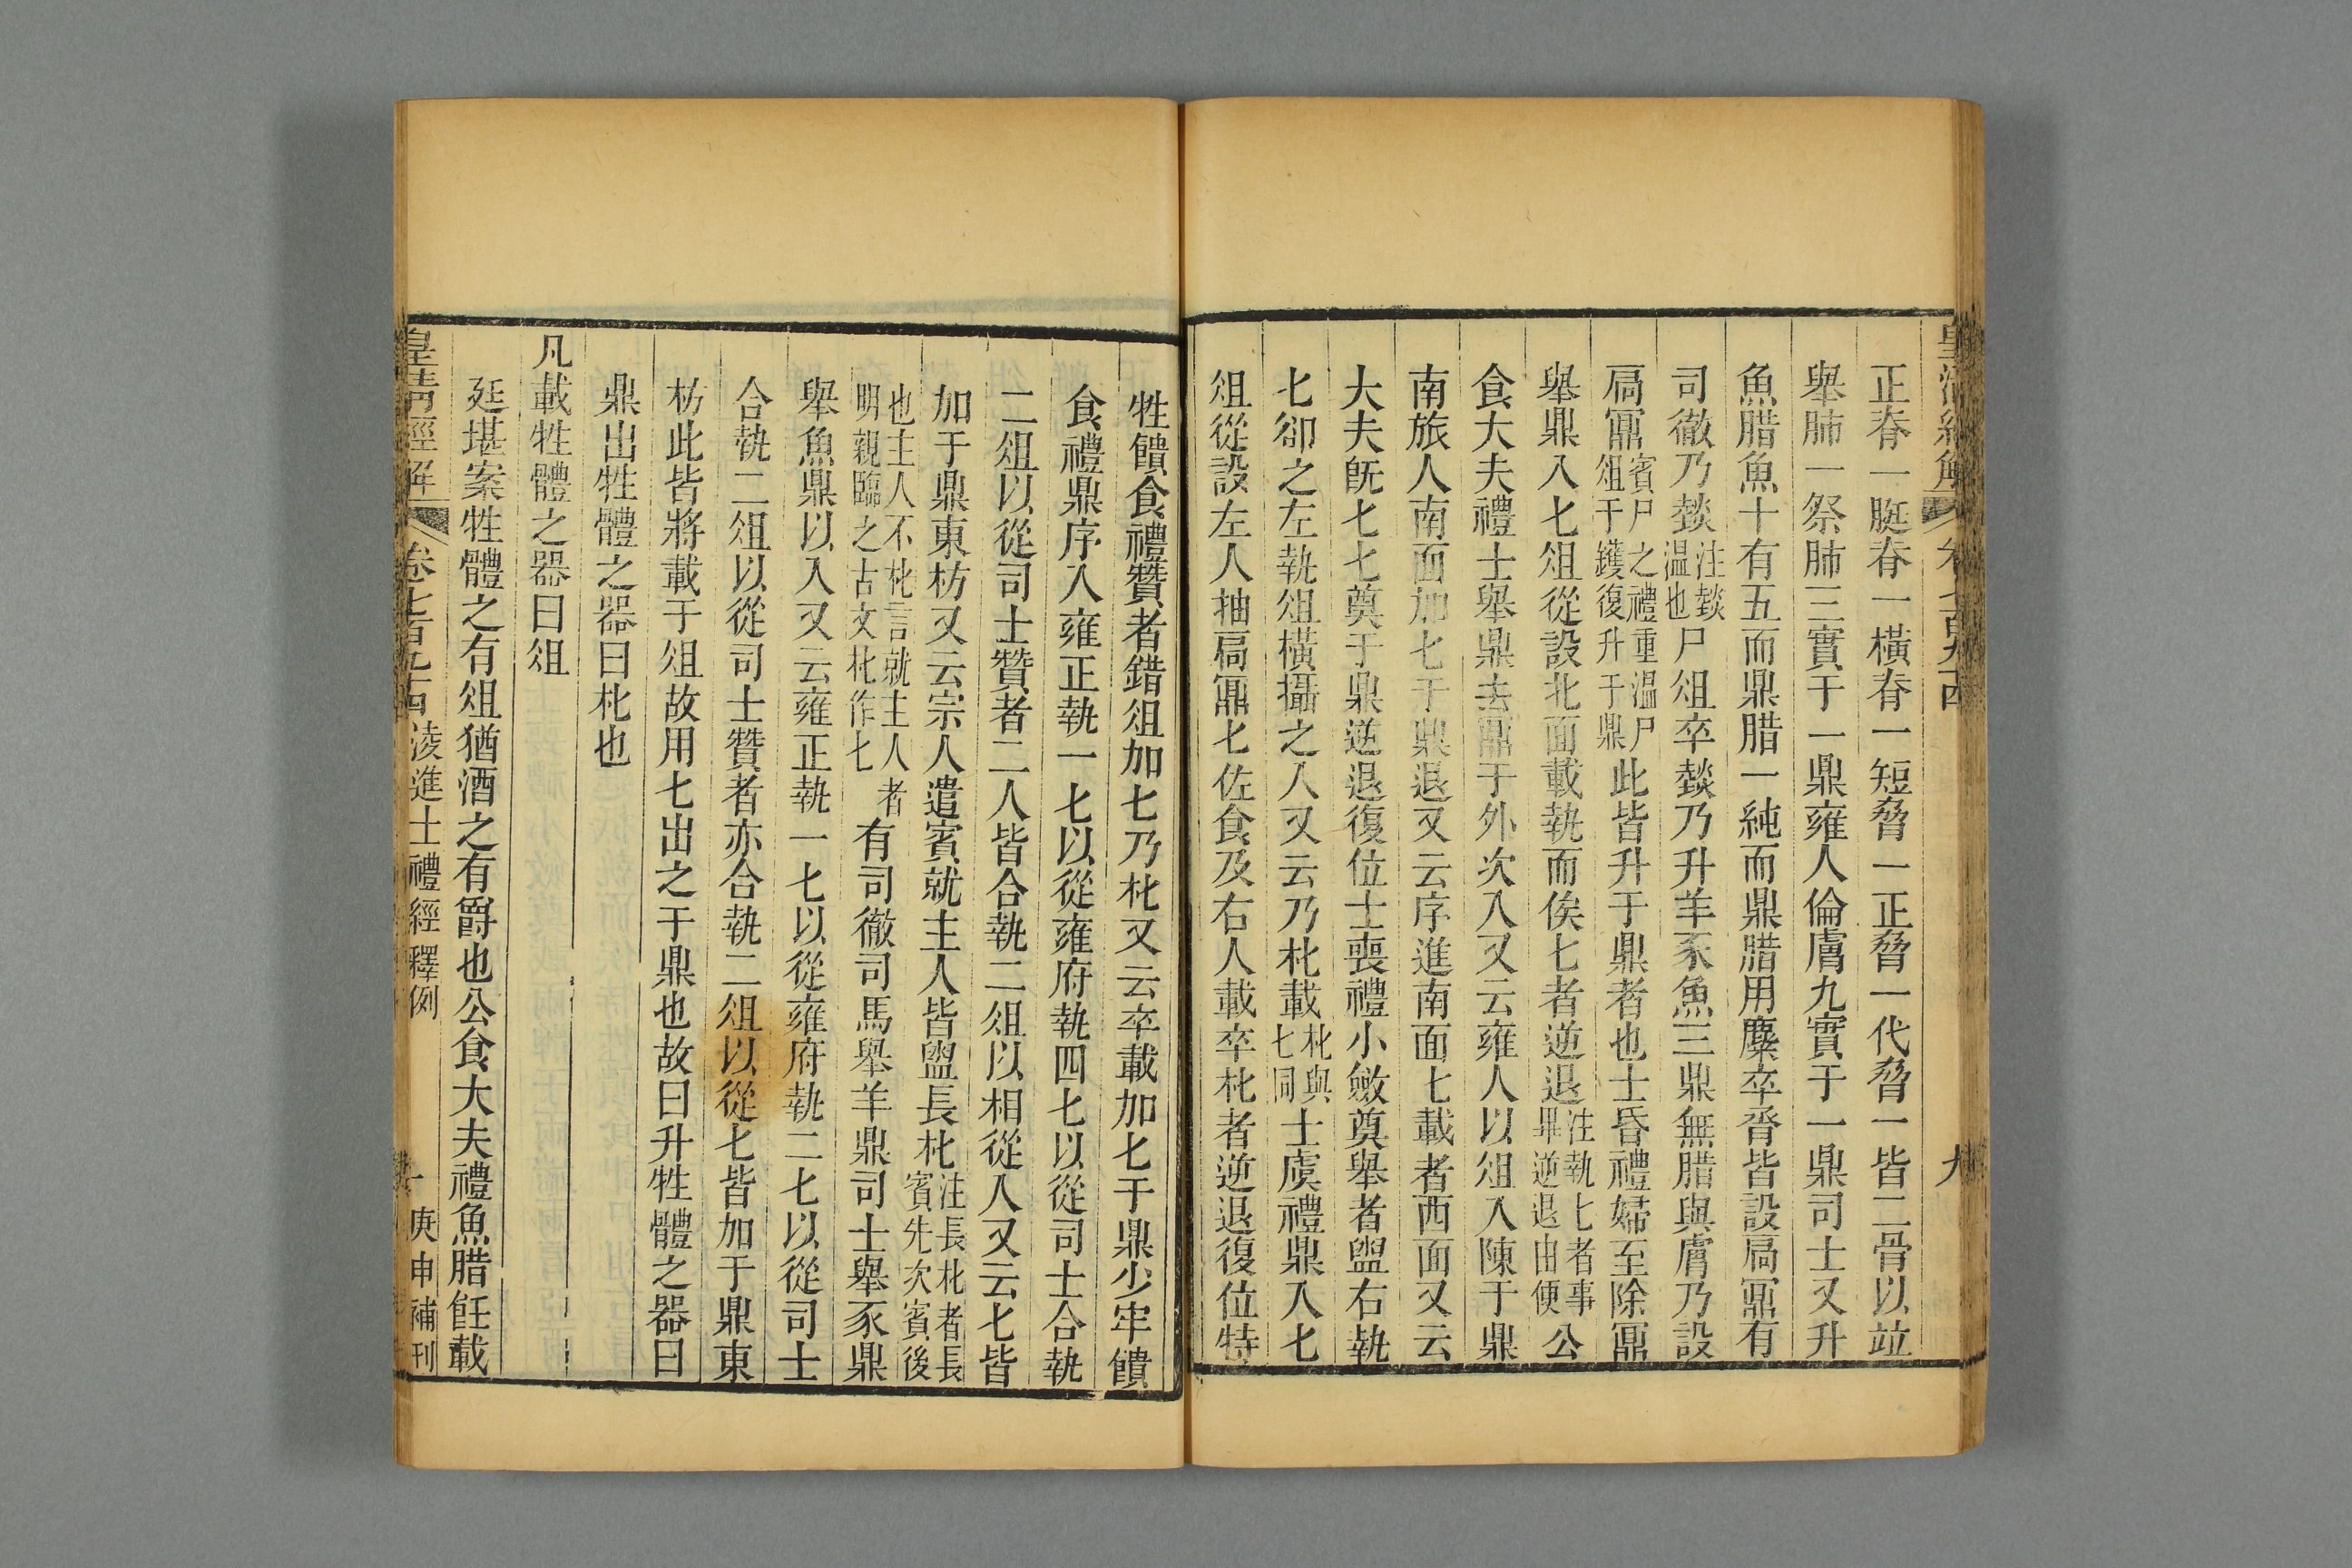 皇清經解 卷七百九十四 九
正脊一脡脊一橫脊一短脅一正脅一代脅一皆二骨以竝
舉肺一祭肺三實于一鼎雍人倫膚九實于一鼎司士又升
魚腊魚十有五而鼎腊一純而鼎腊用麋卒脀皆設扃鼏有
司徹乃燅注燅溫也尸俎卒燅乃升羊豕魚三鼎無腊與膚乃設
扃鼏賓尸之禮重溫尸俎于鑊復升于鼎此皆升于鼎者也士昏禮婦至除鼏
舉鼎入匕俎從設北面載執而俟匕者逆退注執匕者事鼎逆退由便公
食大夫禮士舉鼎去鼏于外次入又云雍人以俎入陳于鼎
南旅人南面加匕于鼎退又云序進南面匕載者西面又云
大夫旣匕匕奠于鼎逆退復位士喪禮小斂奠舉者盥右執
匕卻之左執俎橫攝之入又云乃朼載朼與匕同士虞禮鼎入匕
俎從設左人抽扃鼏匕佐食及右人載卒朼者逆退復位特
牲饋食禮贊者錯俎加匕乃朼又云卒載加匕于鼎少牢饋
食禮鼎序入雍正執一匕以從雍府執四匕以從司士合執
二俎以從司士贊者二人皆合執二俎以相從入又云匕皆
加于鼎東枋又云宗人遣賓就主人皆盥長朼注長朼者長賓先次賓後
也主人不朼言就主人者明親臨之古文朼作匕有司徹司馬舉羊鼎司士舉豕鼎
舉魚鼎以入又云雍正執一匕以從雍府執二匕以從司士
合執二俎以從司士贊者亦合執二俎以從匕皆加于鼎東
枋此皆將載于俎故用匕出之于鼎也故曰升牲體之器曰
鼎出牲體之器曰朼也
凡載牲體之器曰俎
廷堪案牲體之有俎猶酒之有爵也公食大夫禮魚腊飪載
皇清經解 卷七百九十四 淩進士禮經釋例 十 庚申補刊